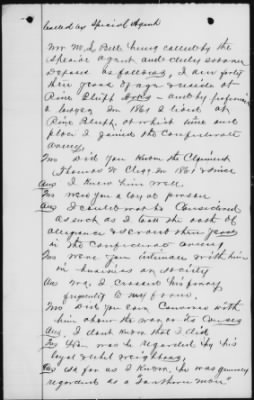 Called as Special Agent
Mr M. L. Bell being called by the
special agent and duly sworn
Deposed as follows, I am forty
three years of age reside at
Pine Bluff Arks - and by profession
a lawyer In 1861 I lived at
Pine Bluff, at which time and
place I joined the Confederate
army,
Did you know the Claimant
Thomas W. Clegg in 1861 & since
Ans I knew him well
Were you a loyal person
Ans I could not be Considered
as such as I took the oath of
allegiance & served three years
in the Confederate army
Were you intimate with him
in business or society
Ans No, I crossed his ferry
frequently to my farm,
Did you ever Converse with
him about the war or its Causes
Ans, I dont know that I did
How was he Regarded by his
loyal rebel neighbors,
Ans As far as I know, he was generally
regarded as a "Southern man"